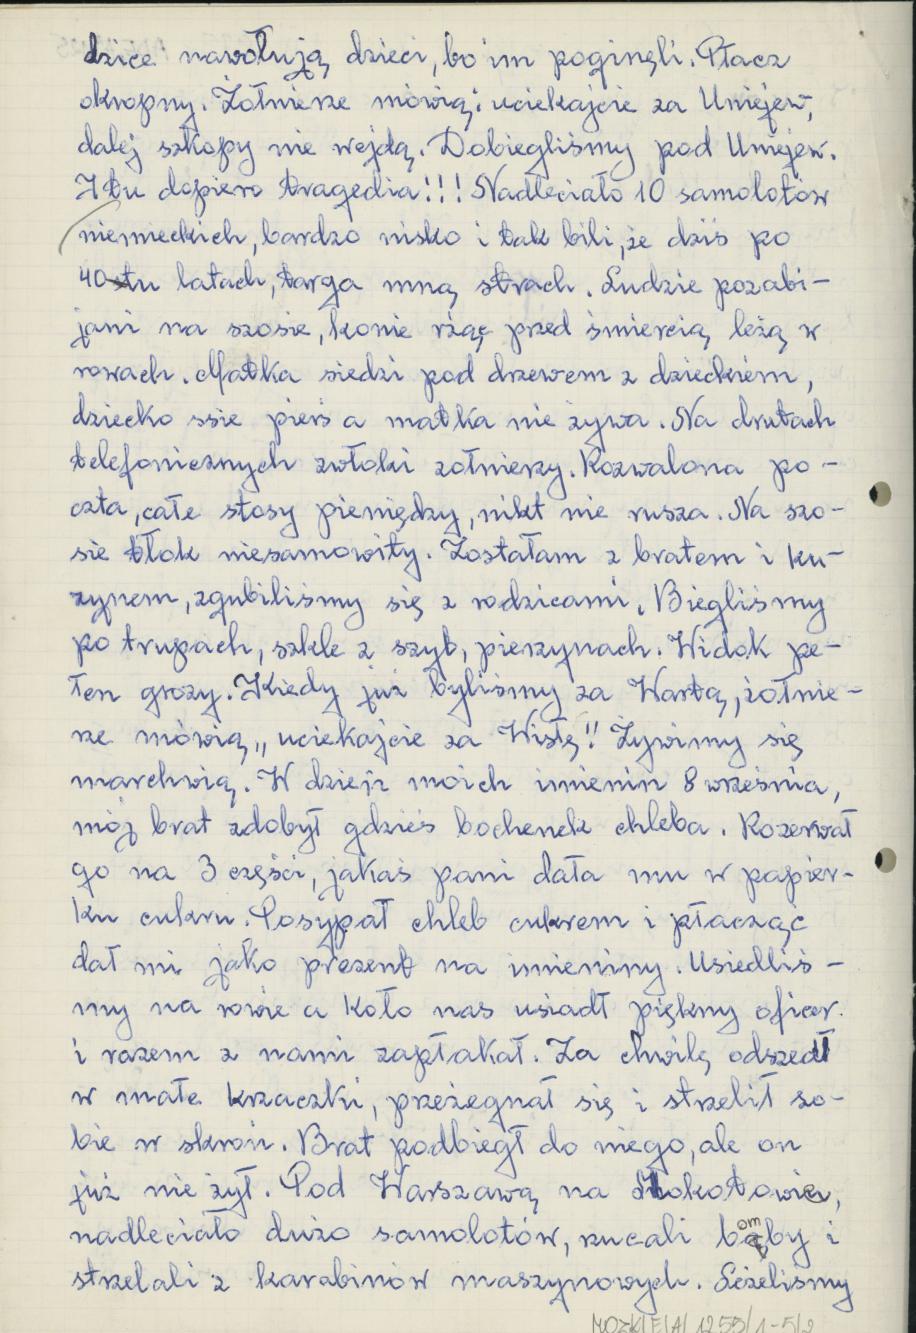 dzice nawołują dzieci, bo im poginęli. Płacz
okropny. Żołnierze mówią: uciekajcie za Uniejew,
dalej szkopy nie wejdą. Dobiegliśmy pod Uniejew.
I tu dopiero tragedia!!! Nadleciało 10 samolotów
niemieckich, bardzo nisko i tak bili, że dziś po
40-tu latach, targa mną strach. Ludzie pozabi-
jani na szosie, konie rżąc przed śmiercią leżą w
rowach. Matka siedzi pod drzewem z dzieckiem,
dziecko ssie pierś a matka nie żywa. Na drutach
telefonicznych zwłoki żołnierzy. Rozwalona po-
czta, całe stosy pieniędzy, nikt nie rusza. Na szo-
sie tłok niesamowity. Zostałam z bratem i ku-
zynem, zgubiliśmy się z rodzicami. Biegliśmy
po trupach, szkle z szyb, pierzynach. Widok pe-
łen grozy. Kiedy już byliśmy za Wartą, żołnie-
rze mówią „uciekajcie za Wisłę!! Żywimy się
marchwią. W dzień moich imienin 8 września,
mój brat zdobył gdzieś bochenek chleba. Rozerwał
go na 3 części, jakaś pani dała mu w papier-
ku cukru. Posypał chleb cukrem i płacząc
dał mi jako prezent na imieniny. Usiedliś-
my na rowie a koło nas usiadł piękny oficer.
i razem z nami zapłakał. Za chwilę odszedł
w małe krzaczki, przeżegnał się i strzelił so-
bie w skroń. Brat podbiegł do niego, ale on
już nie żył. Pod Warszawą na Mokotowie,
nadleciało dużo samolotów, rzucali bomby i
strzelali z karabinów maszynowych. Leżeliśmy
MOZK/E/A/1255/1-5/2